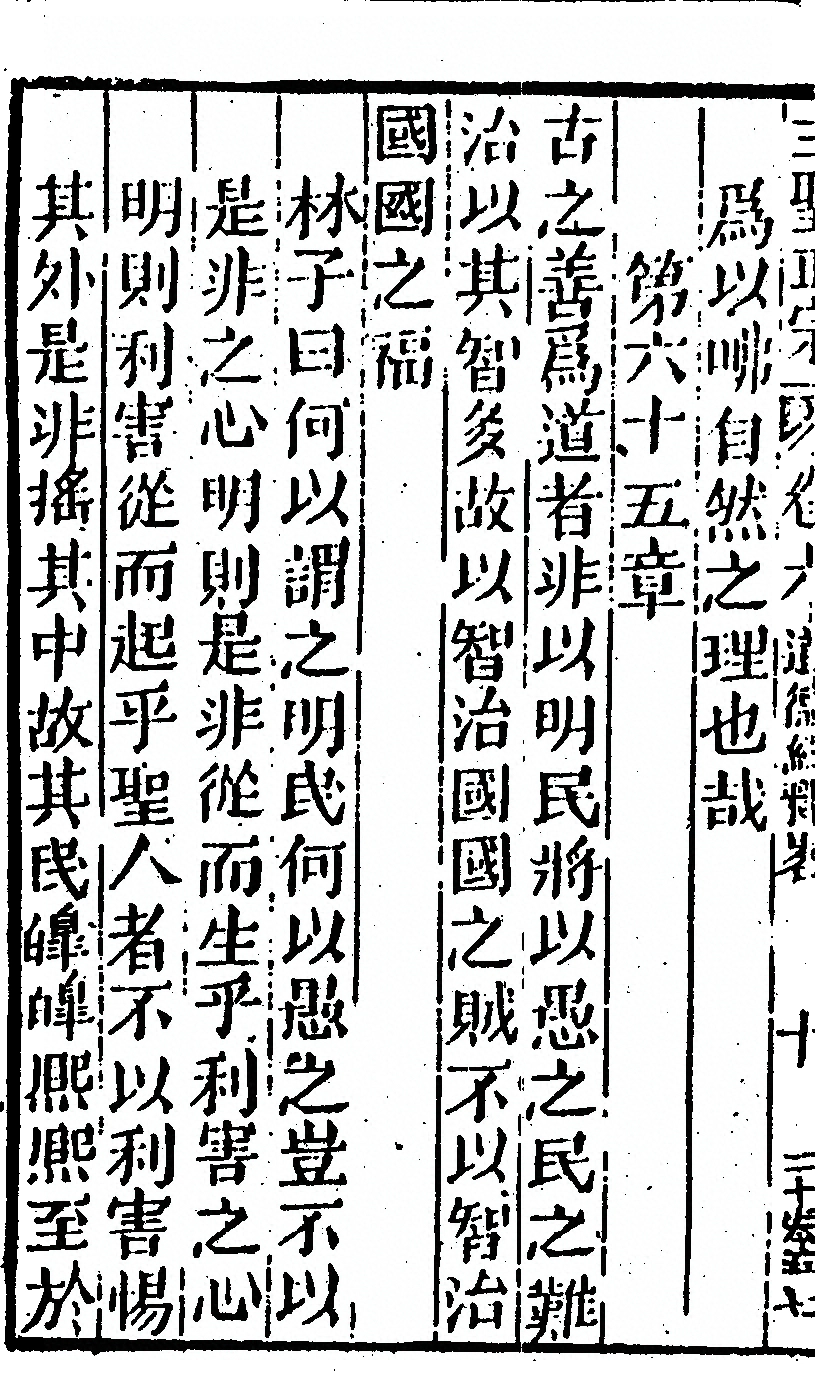 爲以咈自然之理也哉
第六十五章
古之善爲道者非以明民將以愚之民之難
治以其智多故以智治國國之賊不以智治
國國之福
林子曰何以謂之明民何以愚之豈不以
是非之心明則是非從而生乎利害之心
明則利害從而起乎聖人者不以利害惕
其外是非搖其中故其民皥皥熙熙至於